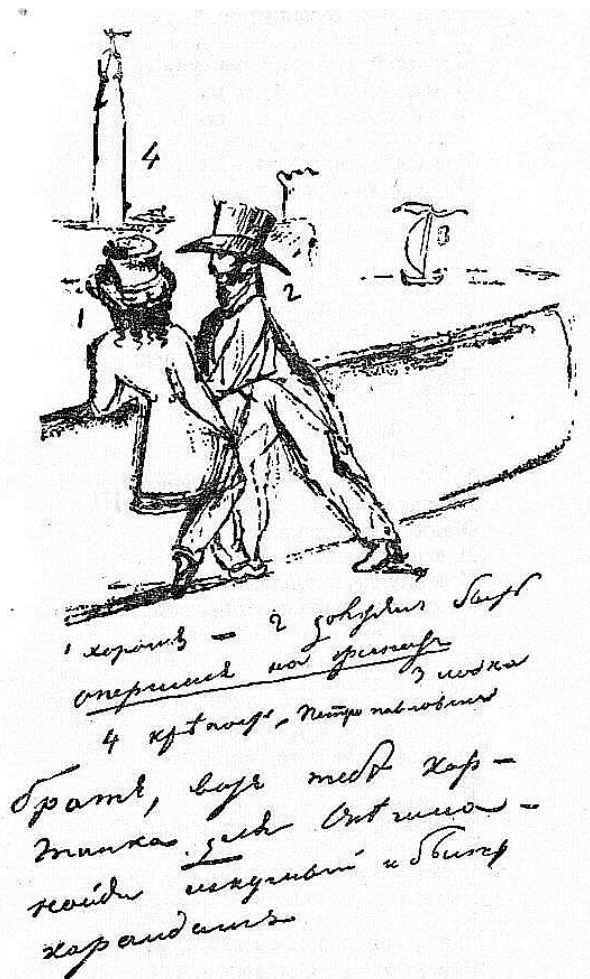 4
2
3
1
1 хорошъ — 2 долженъ быть
опершися на гранитъ
3 лодка
4 крѣпость, Петропавловская
братъ, вотъ тебѣ кар-
тинка для Онѣгина -
найди искусный и быстрый
карандашъ